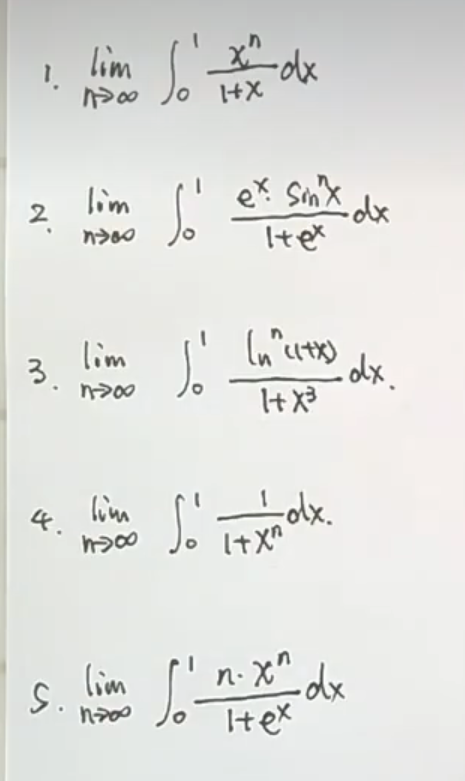 1. lim n→∞ ∫₀¹ xⁿ/(1+x) dx
2. lim n→∞ ∫₀¹ (eˣ·sinⁿx)/(1+eˣ) dx
3. lim n→∞ ∫₀¹ lnⁿ(1+x)/(1+x³) dx.
4. lim n→∞ ∫₀¹ 1/(1+xⁿ) dx.
5. lim n→∞ ∫₀¹ (n·xⁿ)/(1+eˣ) dx